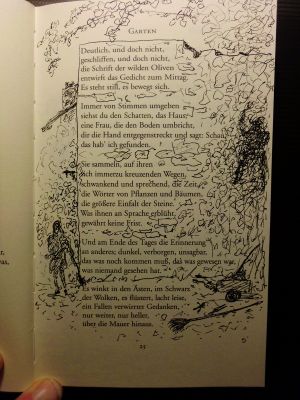 GARTEN
Deutlich, und doch nicht,
geschliffen, und doch nicht,
die Schrift der wilden Oliven
entwirft das Gedicht zum Mittag.
Es steht still, es bewegt sich.
Immer von Stimmen umgeben
siehst du den Schatten, das Haus,
eine Frau, die den Boden umbricht,
die dir die Hand entgegenstreckt und sagt: Schau,
das hab' ich gefunden.
Sie sammeln, auf ihren
sich immerzu kreuzenden Wegen,
schwankend und sprechend, die Zeit,
die Wörter von Pflanzen und Bäumen,
die größere Einfalt der Steine.
Was ihnen an Sprache erblüht,
gewährt keine Frist.
Und am Ende des Tages die Erinnerung
an anderes; dunkel, verborgen, unsagbar,
das was noch kommen muß, das was gewesen war,
was niemand gesehen hat.
Es winkt in den Ästen, im Schwarz
der Wolken, es flüstert, lacht leise,
ein Fallen verwirrter Gedanken,
nur weiter, nur heller,
über die Mauer hinaus.
25